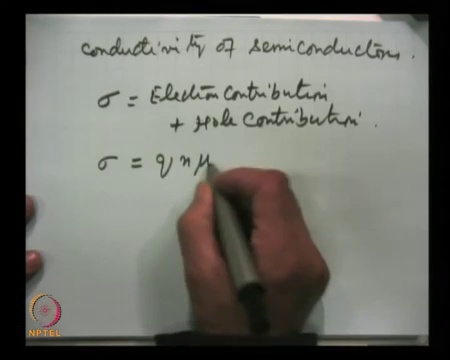 conductivity of semiconductors.
σ = Electron contribution
+ Hole contribution.
σ = q n μ
NPTEL